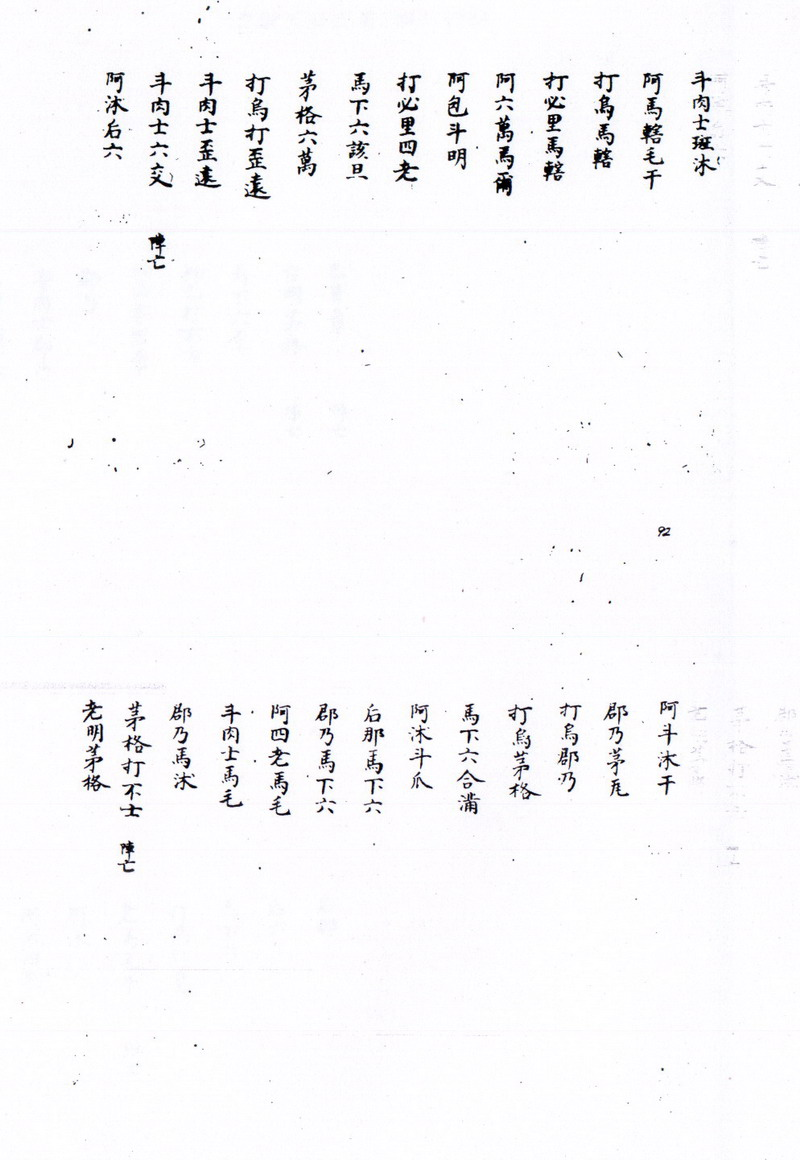 斗肉士斑沐
阿馬轄毛干
打烏馬轄
打必里馬轄
阿六萬馬爾
阿包斗明
打必里四老
馬下六該旦
茅格六萬
打烏打歪遠
斗肉士歪遠
斗肉士六交 陣亡
阿沐后六
92
阿斗沐干
郡乃茅𠂆
打烏郡乃
打烏茅格
馬下六合滿
阿沐斗爪
后那馬下六
郡乃馬下六
阿四老馬毛
斗肉士馬毛
郡乃馬沭
茅格打不士 陣亡
老明茅格